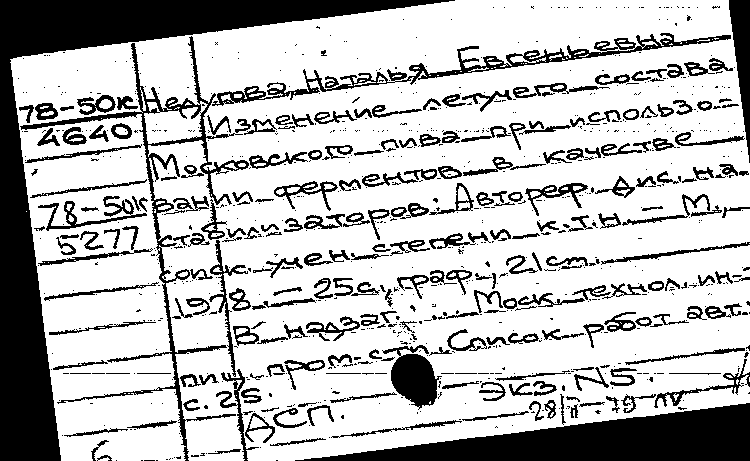 78-50к Недугова, Наталья Евгеньевна
4640 Изменение летучего состава
Московского пива при использо=
78-50к вании ферментов в качестве
5277 стабилизаторов: Автореф. дис. на
соиск. учен. степени к.т.н. – М.,
1978. – 25 с., граф.; 21 см.
В надзаг.: ... Моск. технол. ин-т
пищ. пром-сти. Список работ авт.:
с. 25.
ДСП. Экз. N5.
28/II-79
Б